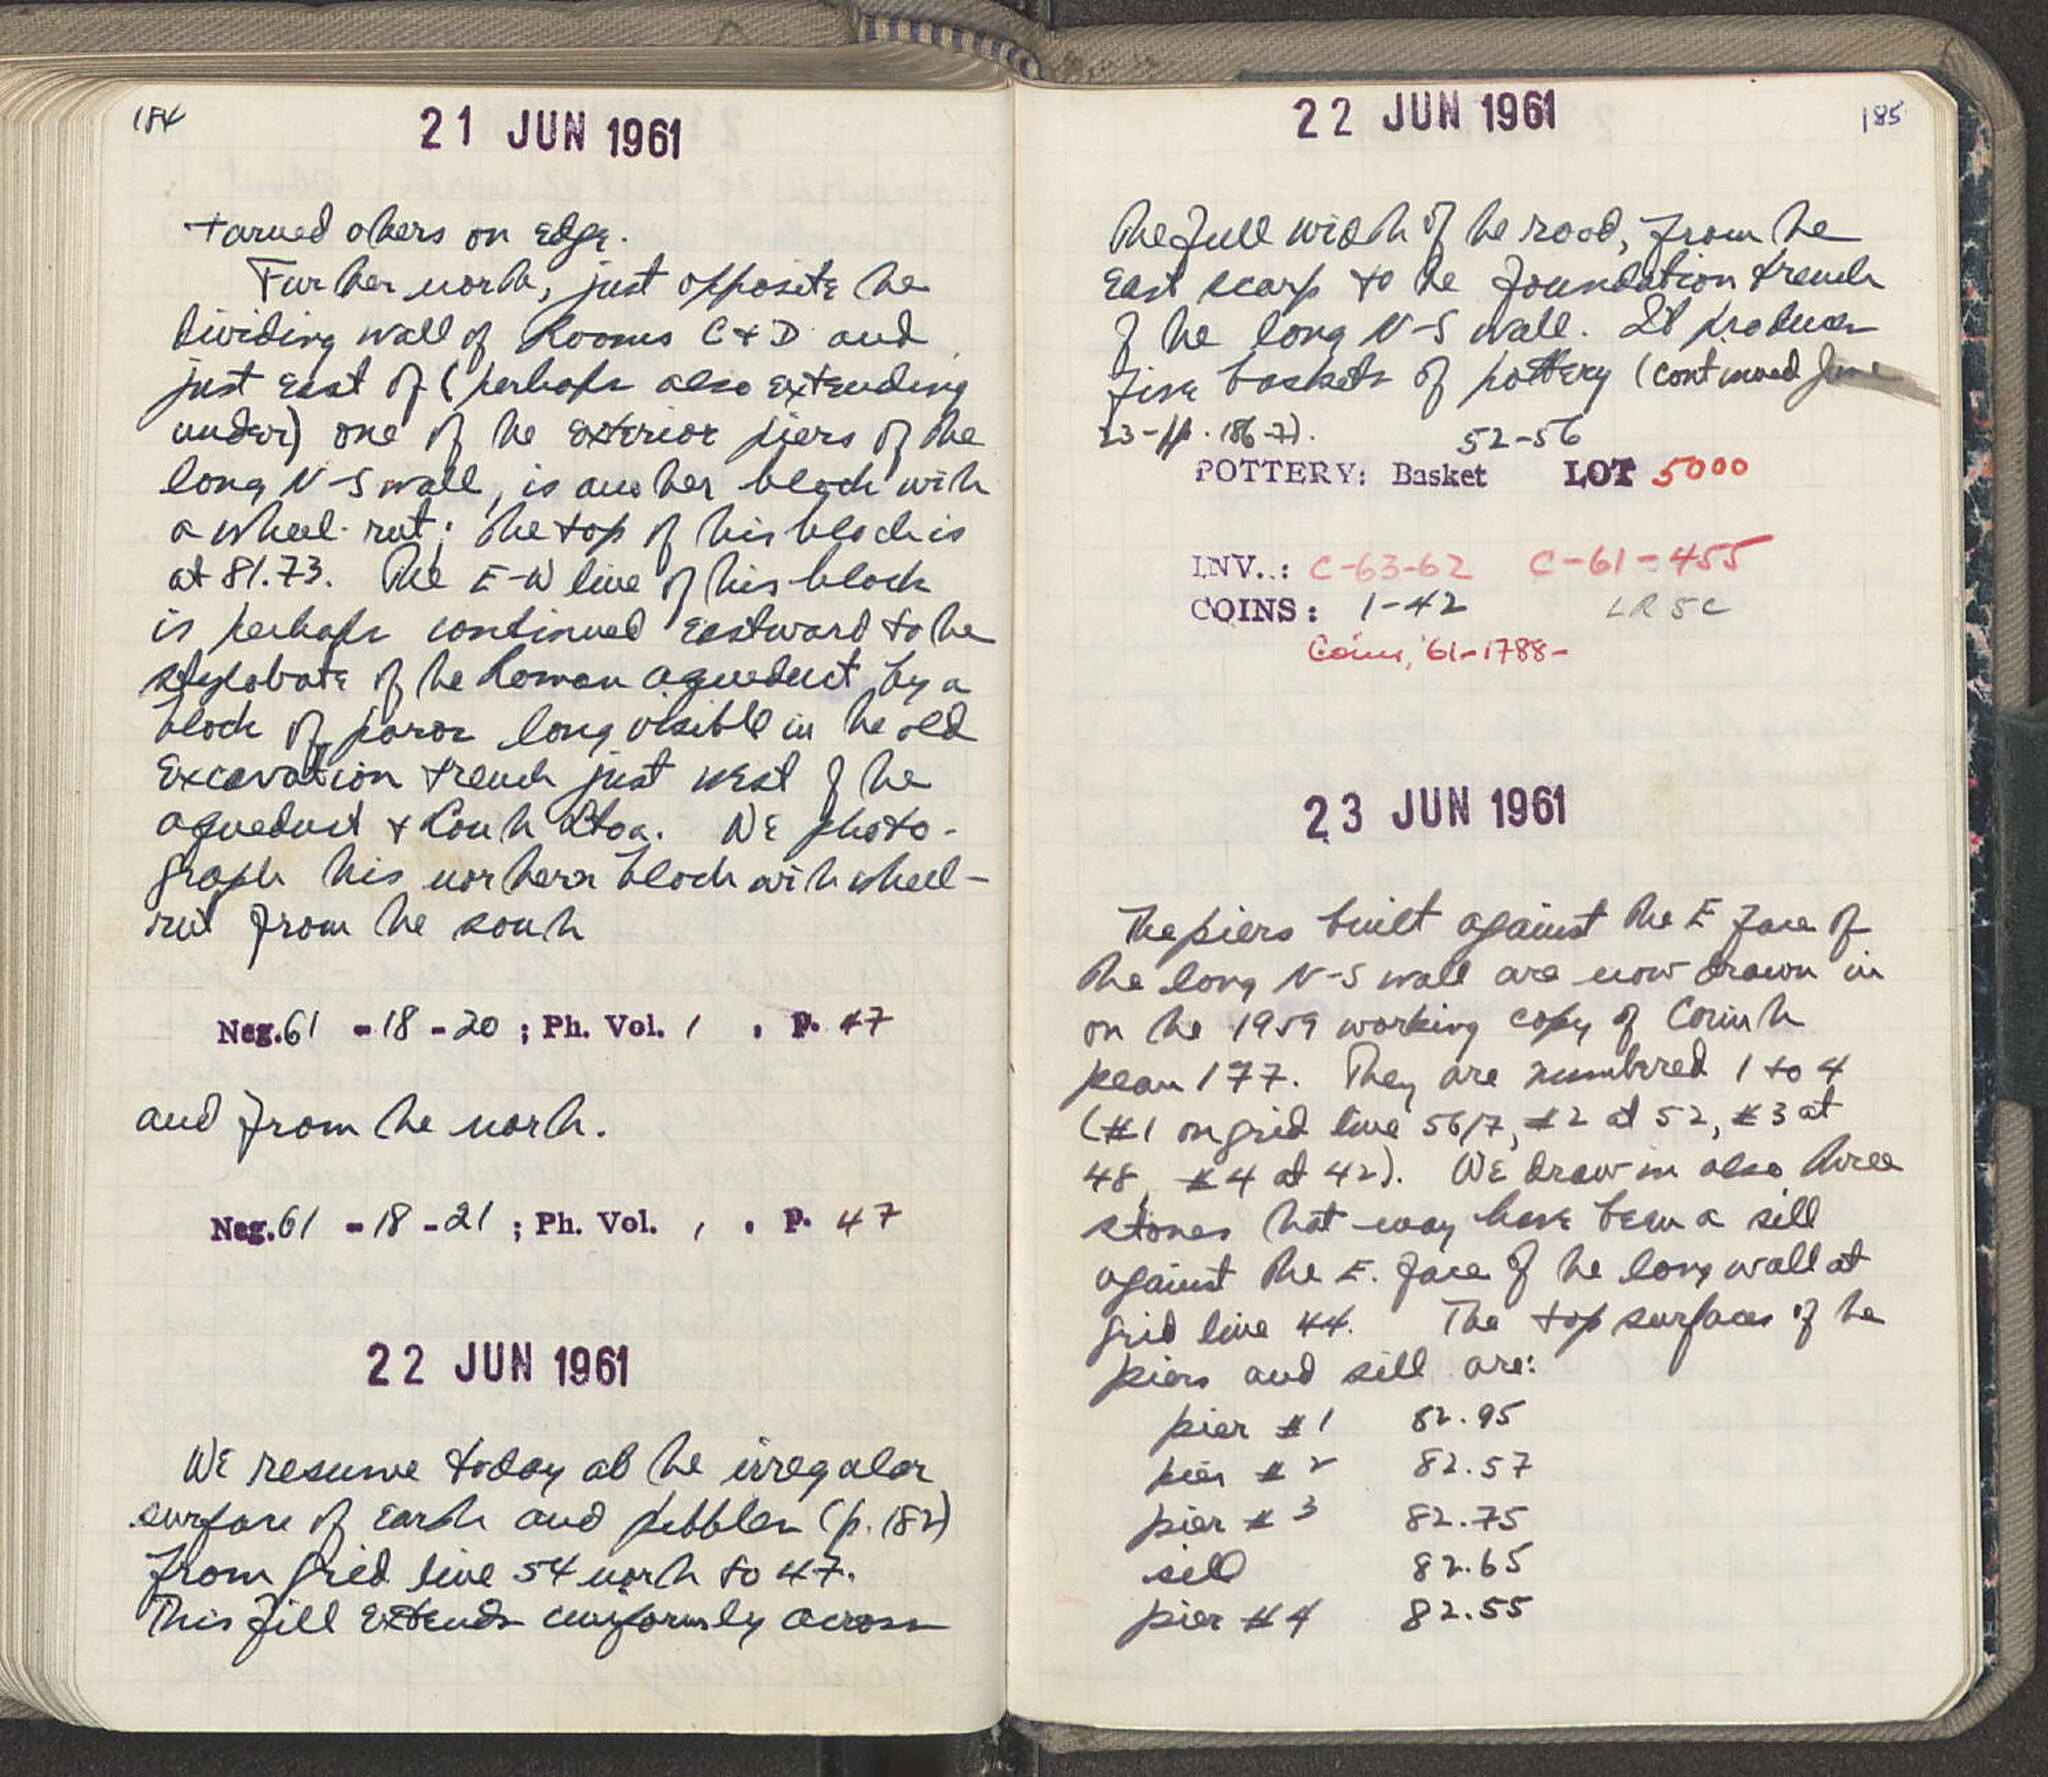 184
21 JUN 1961
turned others on edge.
Further north, just opposite the
dividing wall of Rooms C + D and
just east of (perhaps also extending
under) one of the exterior piers of the
long N-S wall, is another block with
a wheel-rut; the top of this block is
at 81.73. The E-W line of this block
is perhaps continued eastward to the
stylobate of the Roman aqueduct by a
block of poros long visible in the old
excavation trench just west of the
aqueduct + South Stoa. We photo-
graph this northern block with wheel-
rut from the south
Neg. 61 - 18 - 20 ; Ph. Vol. 1 , p. 47
and from the north.
Neg. 61 - 18 - 21 ; Ph. Vol. 1 , p. 47
22 JUN 1961
We resume today at the irregular
surface of earth and pebbles (p. 182)
from grid line 54 north to 47.
This fill extends uniformly across
22 JUN 1961
185
the full width of the road, from the
east scarp to the foundation trench
of the long N-S wall. It produces
five baskets of pottery (continued June
23 - pp. 186-7).
52-56
POTTERY: Basket LOT 5000
INV.: C-63-62 C-61-455
COINS: 1-42 LR 5C
Coins, '61-1788-
23 JUN 1961
The piers built against the E face of
the long N-S wall are now drawn in
on the 1959 working copy of Corinth
plan 177. They are numbered 1 to 4
(#1 on grid line 56/7, #2 at 52, #3 at
48, #4 at 42). We draw in also three
stones that may have been a sill
against the E. face of the long wall at
grid line 44. The top surfaces of the
piers and sill are:
pier #1 82.95
pier #2 82.57
pier #3 82.75
sill 82.65
pier #4 82.55